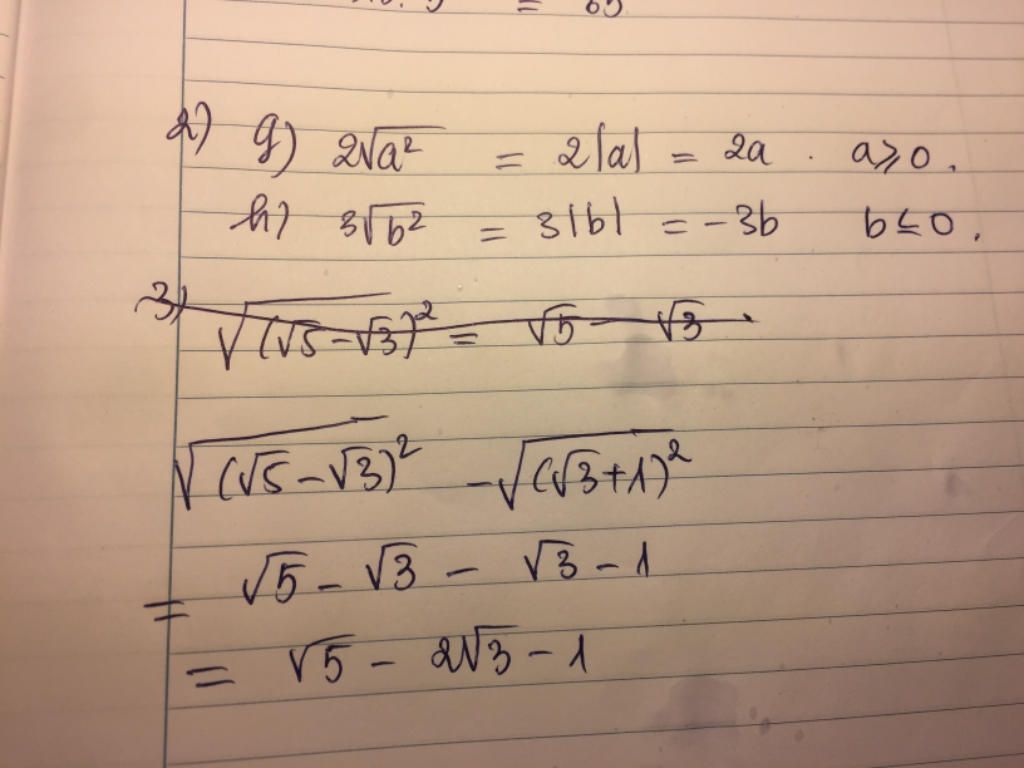 = 65
2) g) 2√a² = 2|a| = 2a . a⩾0.
h) 3√b² = 3|b| = -3b b≤0.
3) √(√5-√3)² = √5 - √3
√(√5-√3)² -√(√3+1)²
= √5 - √3 - √3 - 1
= √5 - 2√3 - 1